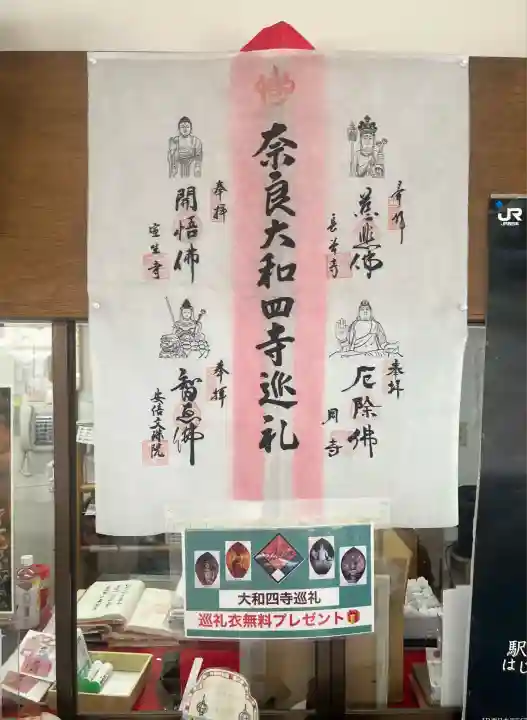 奈良大和四寺巡礼
奉拝
慈悲佛
長谷寺
奉拝
厄除佛
岡寺
奉拝
開悟佛
室生寺
奉拝
智恵佛
安倍文殊院
大和四寺巡礼
巡礼衣無料プレゼント
JR
駅
はじ